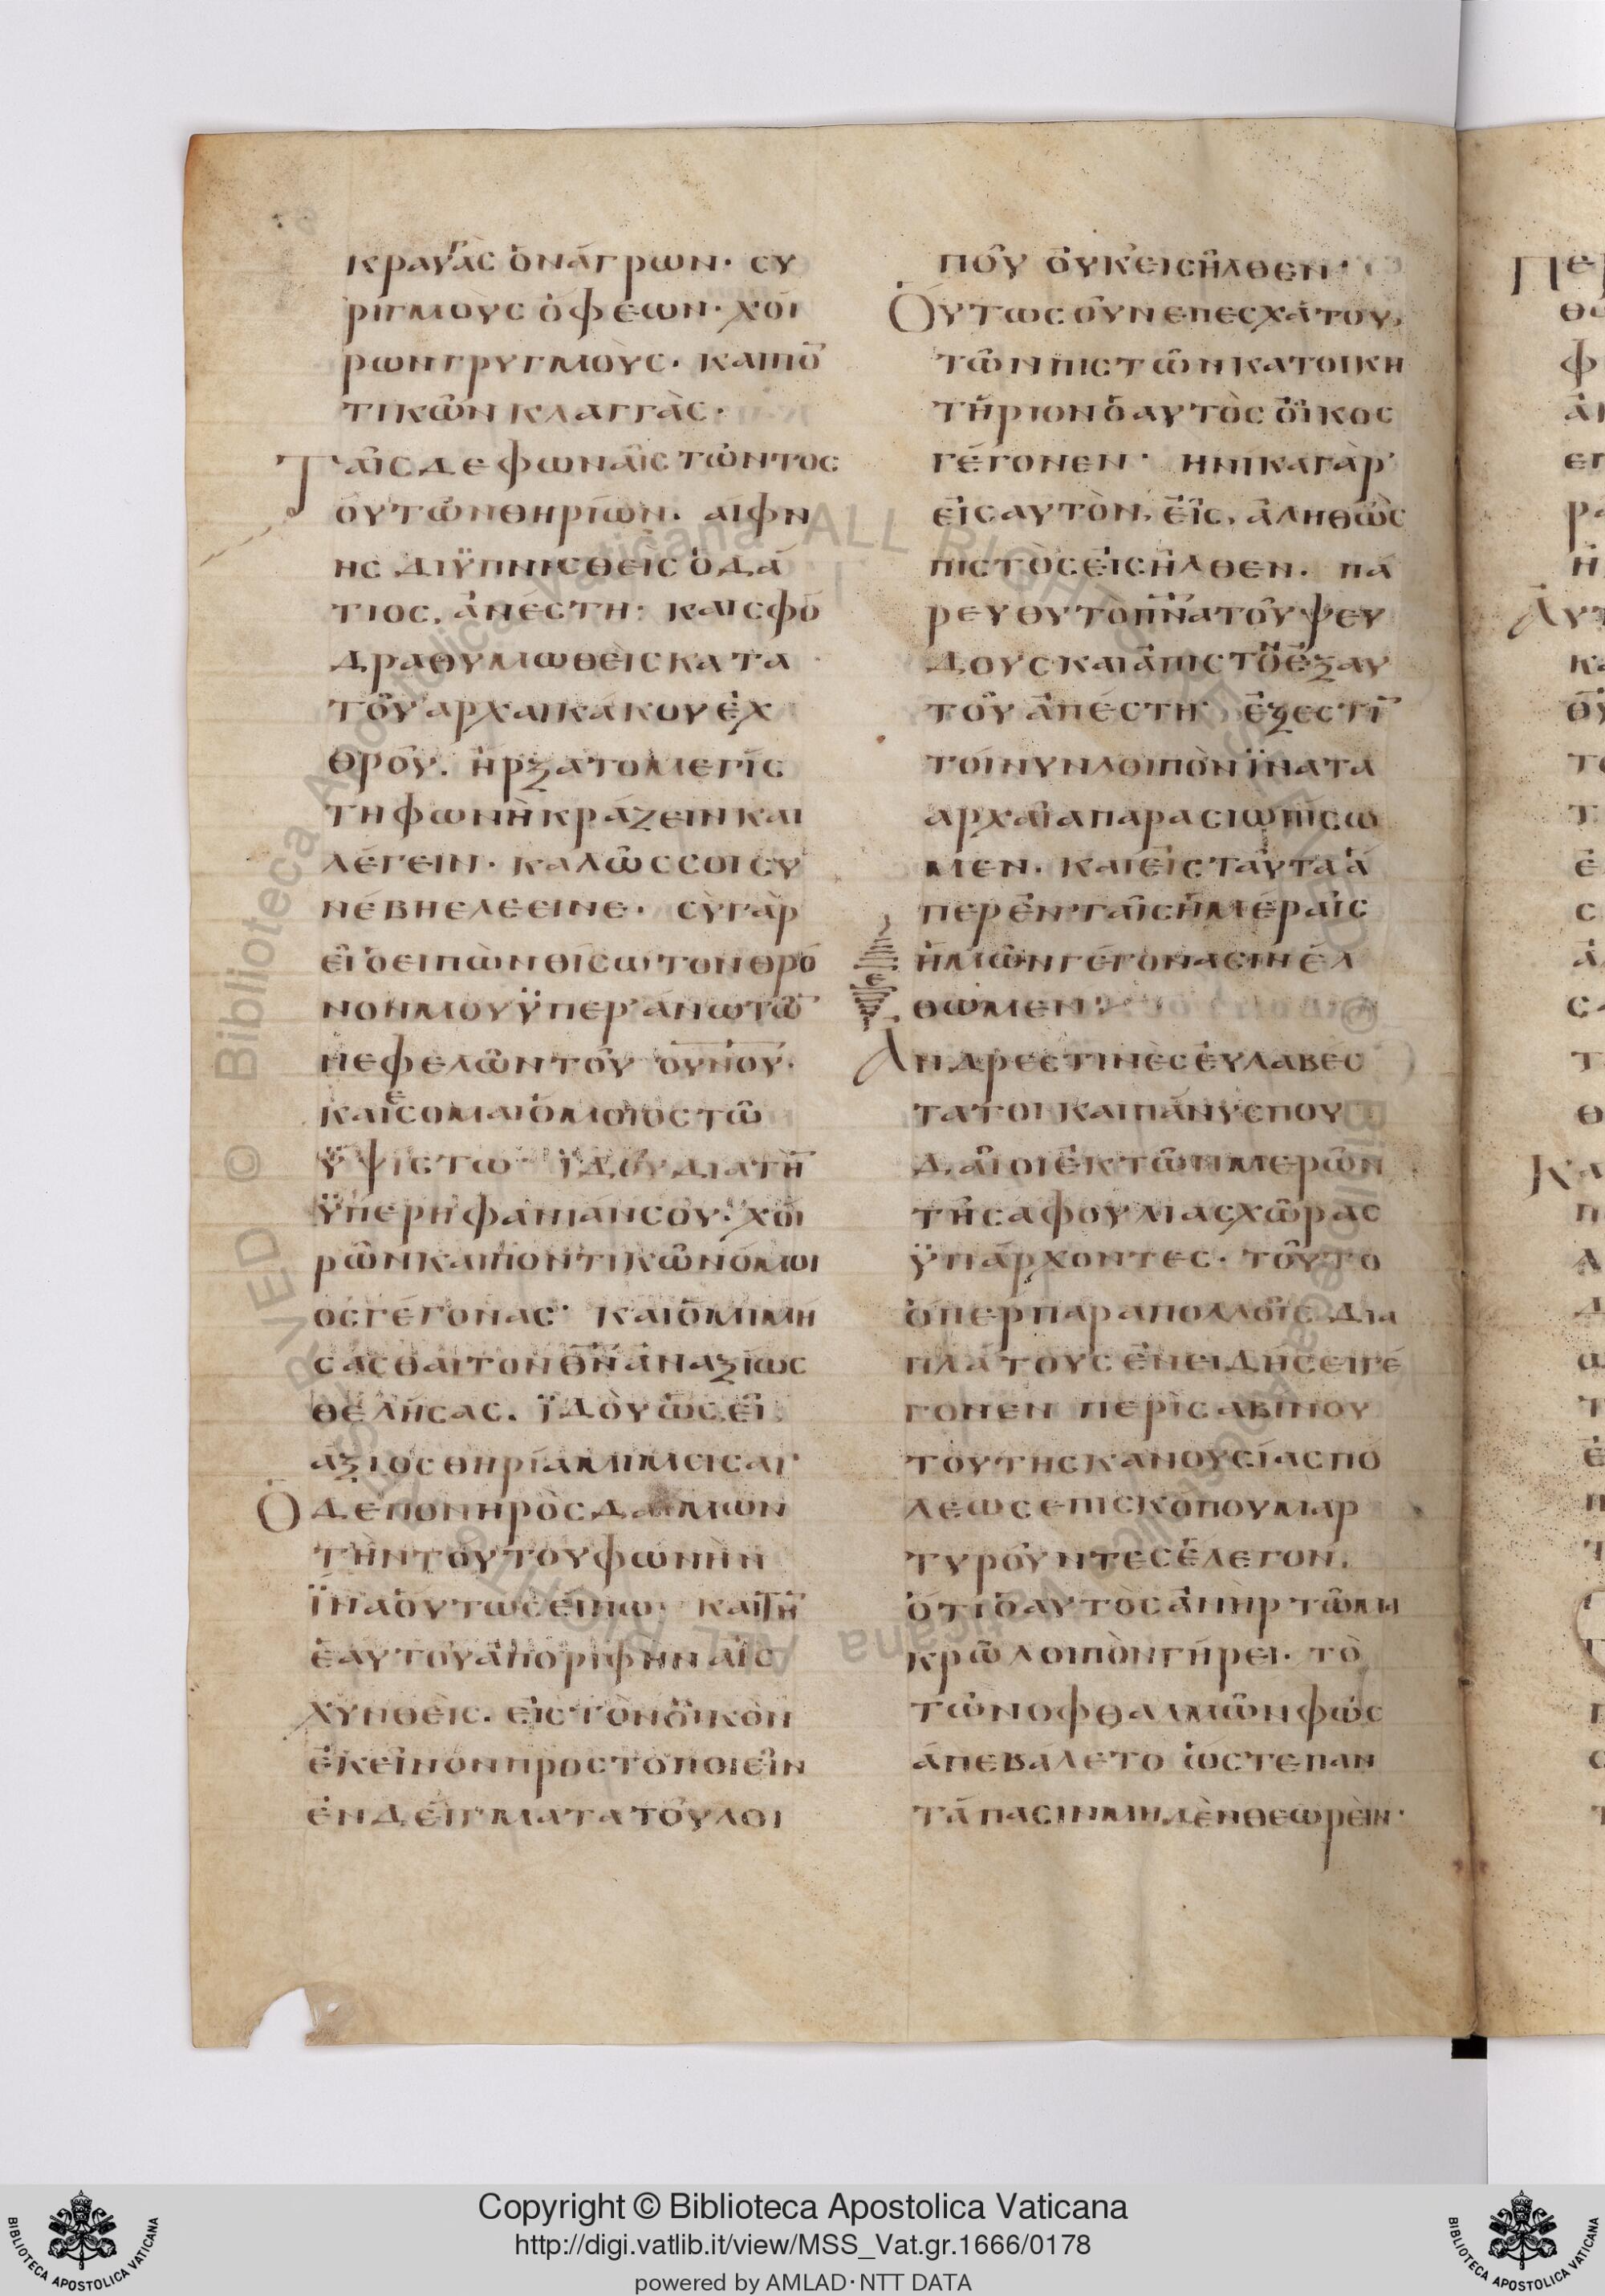 κραυγὰς ὀνάγρων· συ
ριγμοὺς ὄφεων· χοί
ρων γρυγμοὺς· καὶ πο̅
τικῶν κλαγγὰς·
Ταῖς δὲ φωναῖς τῶν τος
ούτων θηρίων. αἰφν
ης διϋπνισθεὶς ὁ δά
τιος, ἀνέστη· καὶ σφό
δρα θυμωθεὶς κατὰ
τοῦ ἀρχαικάκου ἐχ
θροῦ. ἤρξατο μεγίσ
τη φωνῆ κράζειν καὶ
λέγειν· καλῶς σοι συ
νέβη ἐλεεινέ· σὺ γὰρ
εἶ ὁ εἰπὼν θήσω τὸν θρό
νον μου ϋπερ ἄνω τῶ̅
νεφελῶν τοῦ ο̅υ̅ν̅ο̅υ̅·
καὶ ἔσομαι ὅμοιος τῶ
ϋψίστω· ϊδοὺ διὰ τὴ̅
ϋπερηφανίαν σου· χοί
ρων καὶ ποντικῶν ὅμοι
ος γέγονας· καὶ ὁ μιμή
σασθαι τὸν θ̅ν̅ ἀναξίως
θελήσας. ϊδοὺ ὡς εἶ
ἄξιος θηρία μιμεῖσαι·
Ὁ δὲ πονηρὸς δαίμων
τὴν τούτου φωνὴν
ϊνα οὕτως εἴπω· καὶ τὴ̅
ἑαυτοῦ ἀπόριψιν αἰσ
χυνθεὶς. εἰς τὸν οἶκον
ἐκεῖνον πρὸς τὸ ποιεῖν
ἐνδείγματα τοῦ λοι
ποῦ οὐκ εἰσῆλθεν·
Οὕτως οὖν ἐπ ἐσχάτου,
τῶν πιστῶν κατοικη
τήριον ὁ αὐτὸς οἶκος
γέγονεν· ἡνίκα γὰρ
εἰς αὐτὸν, εἷς, ἀληθῶς
πιστὸς εἰσῆλθεν. πα
ρευθὺ τὸ π̅ν̅α̅ τοῦ ψεύ
δους καὶ ἀπιστο̅ ἐξ αυ
τοῦ ἀπέστη· ἔξεστι̅
τοίνυν λοιπὸν ϊνα τὰ
ἀρχαῖα παρασιωπήσω
μεν. καὶ εἰς ταῦτα ἅ
περ ἐν ταῖς ἡμέραις
ἡμῶν γέγοναςιν ἔλ
θωμεν:
ε
Ἄνδρες τινὲς εὐλαβέσ
τατοι καὶ πάνυ σπου
δαῖοι ἐκ τῶν μερῶν
τῆς ἀφουλίας χώρας
ϋπάρχοντες· τοῦτο
ὅπερ παρα πολλοῖς δια
πλάτους ἐπειδήσει γέ
γονεν περὶ σαβίνου
τοῦ τῆς κανουσίας πό
λεως ἐπισκόπου μαρ
τυροῦντες ἔλεγον,
ὅτι ὁ αὐτὸς ἀνὴρ τῶ μα
κρῶ λοιπὸν γήρει· τὸ
τῶν ὀφθαλμῶν φῶς
ἀπεβάλετο ὥστε παν
τάπασιν μηδὲν θεωρεῖν·
Copyright © Biblioteca Apostolica Vaticana
http://digi.vatlib.it/view/MSS_Vat.gr.1666/0178
powered by AMLAD·NTT DATA